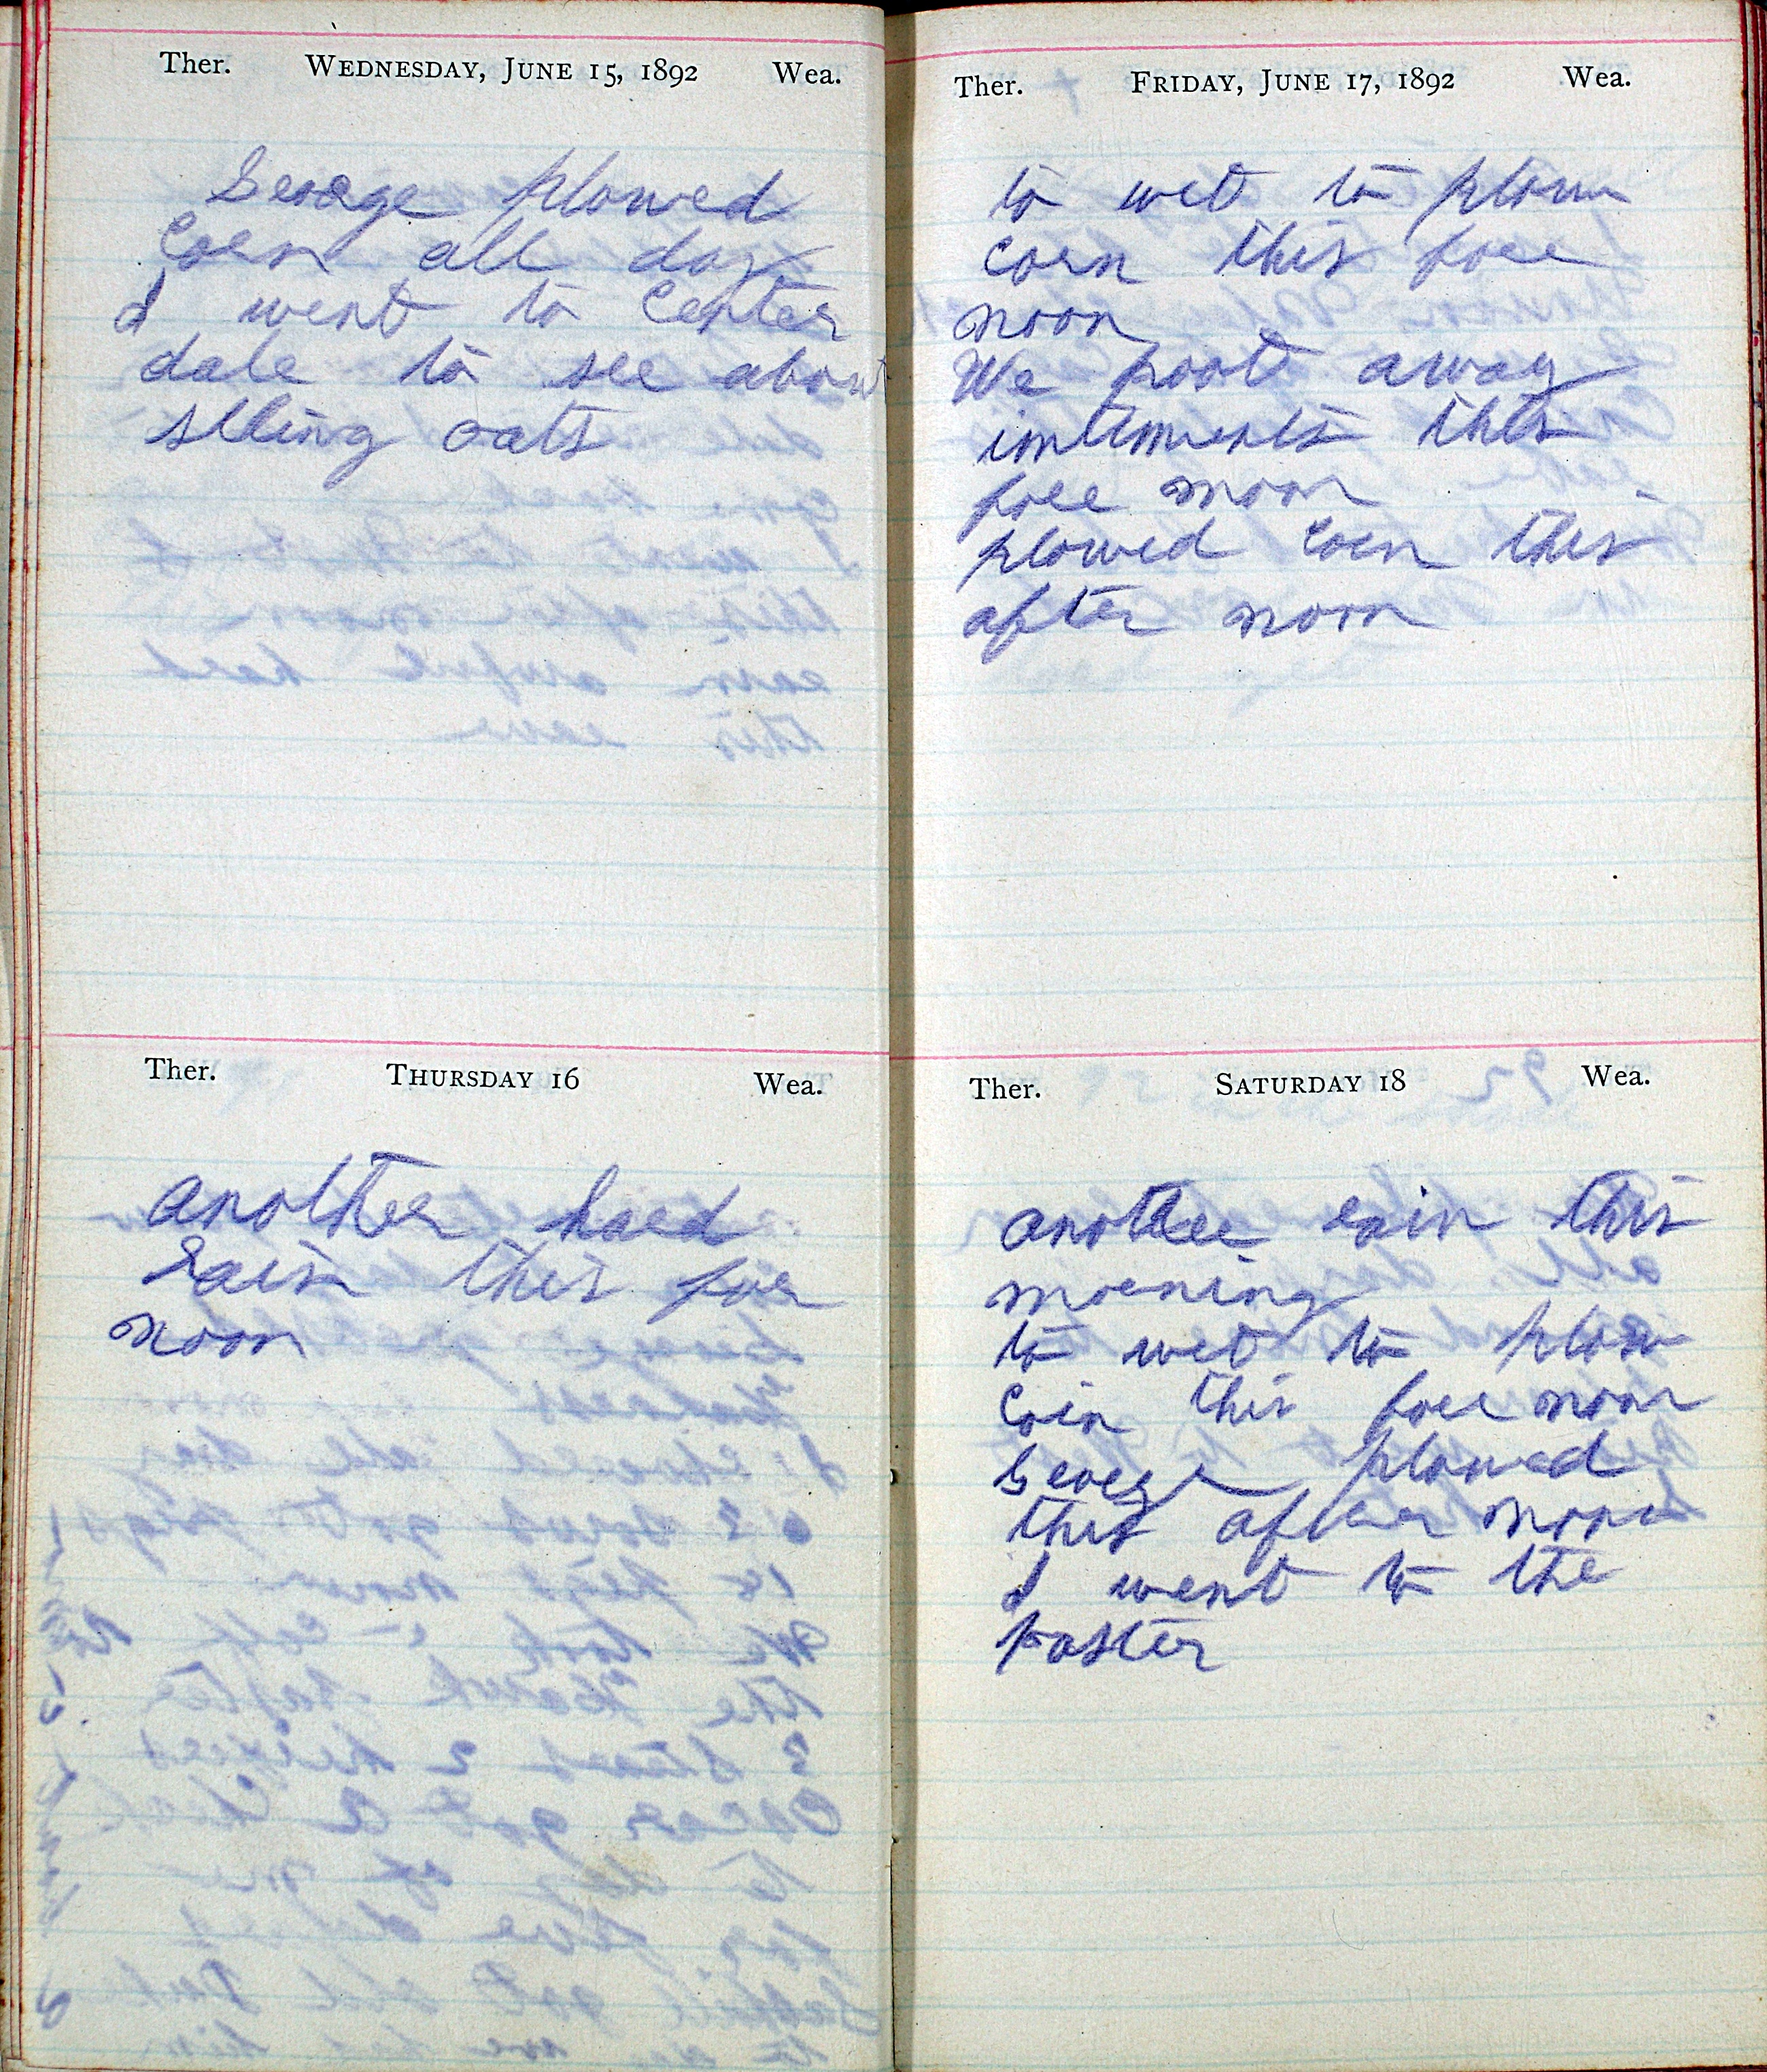 Ther. WEDNESDAY, JUNE 15, 1892 Wea.
George plowed
Corn all day
I went to Center
dale to see about
slling oats
Ther. THURSDAY 16 Wea.
another hard
Rain this for
noon
Ther. FRIDAY, JUNE 17, 1892 Wea.
to wet to plow
corn this fore
noon
We poot away
imtments this
fore noon
plowed corn this
after noon
Ther. SATURDAY 18 Wea.
another rain this
morning
to wet to plow
Corn this fore noon
George plowed
this after noon
I went to the
paster